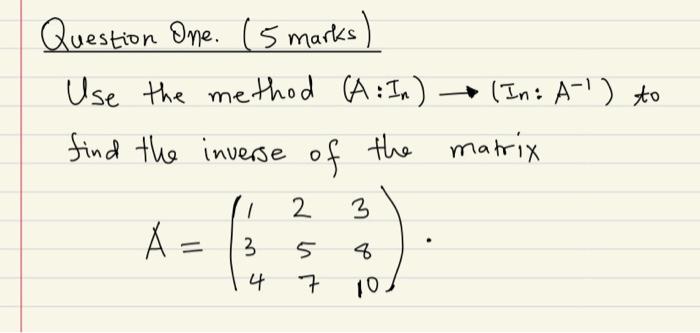 Question One. (5 marks)
Use the method (A:In) → (In: A⁻¹) to
find the inverse of the matrix
A = (1 2 3
3 5 8
4 7 10).